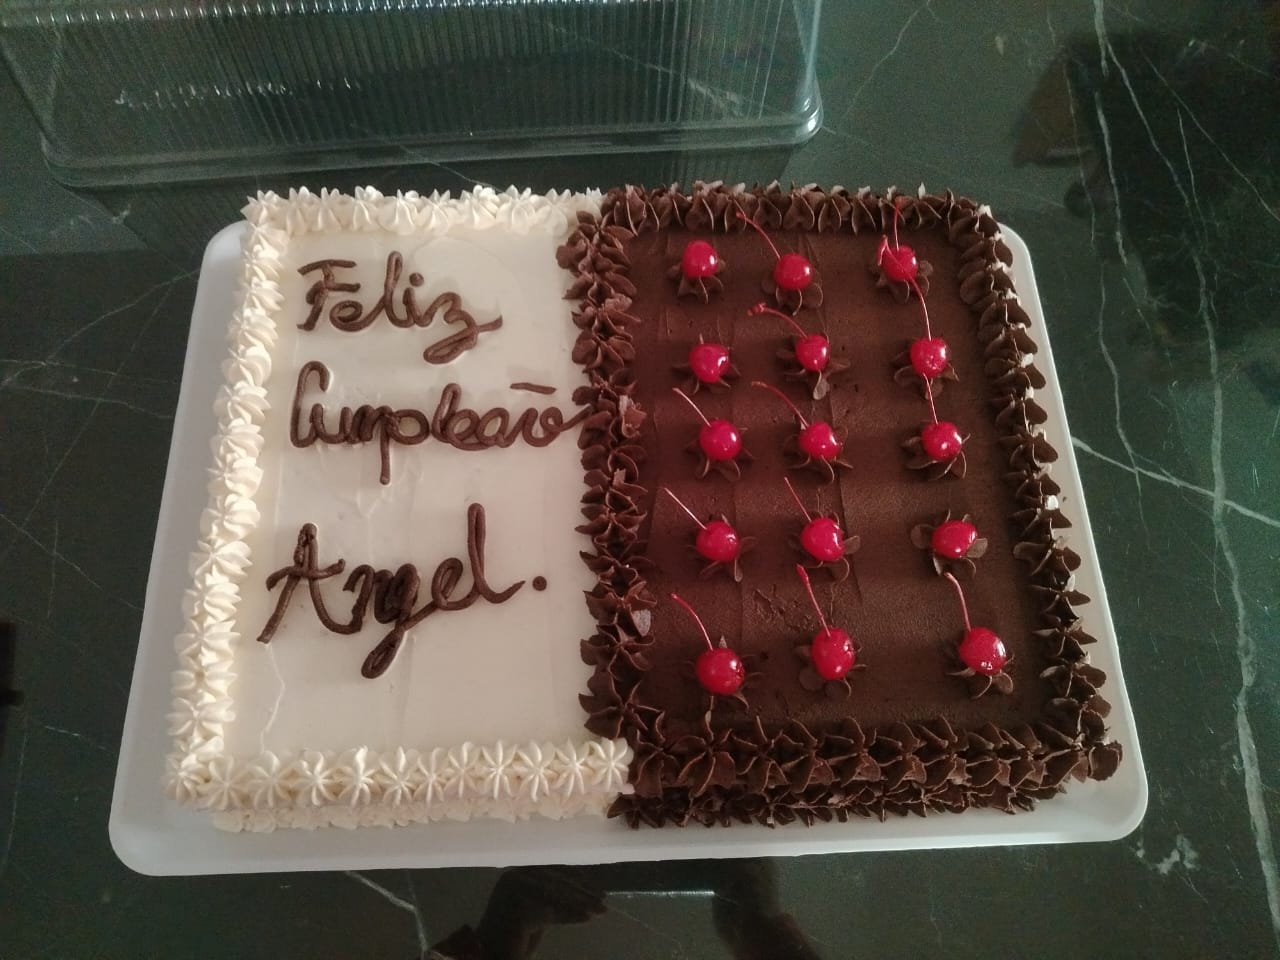 Feliz
Cumpleaño
Angel.